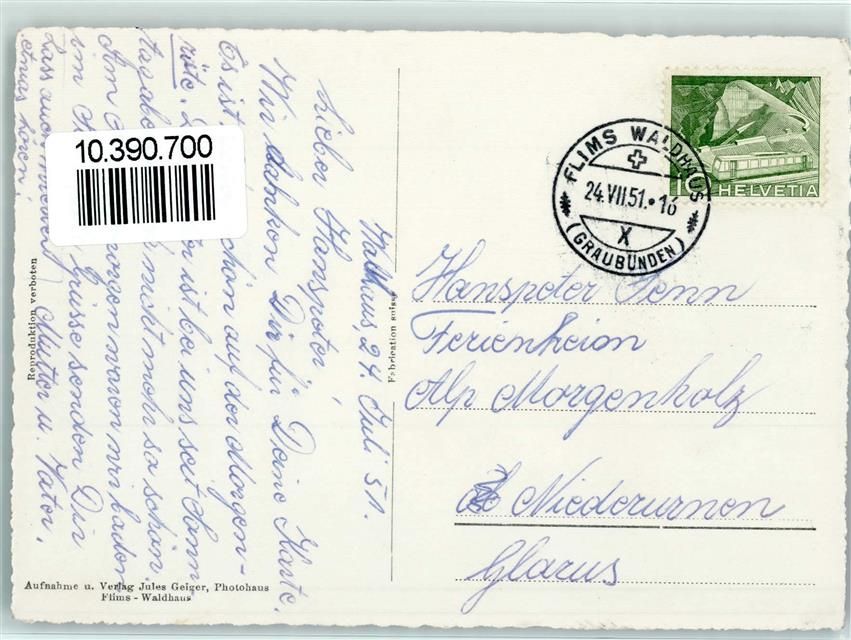 Waldhaus, 24. Juli 51.
Lieber Hanspeter,
Wir danken Dir für Deine Karte.
Es ist schön auf der Morgen-
röte. ist bei uns seit Sonn
tagabend nicht mehr so schön.
Am morgen waren wir baden
im Grüsse senden Dir
Mutter u. Vater.
Lass auch
etwas hören.
10.390.700
Reproduktion verboten
Fabrication suisse
Aufnahme u. Verlag Jules Geiger, Photohaus
Flims - Waldhaus
FLIMS WALDHAUS
24.VII.51.•16
X
(GRAUBÜNDEN)
10 HELVETIA
Hanspeter Jenn
Ferienheim
Alp Morgenholz
Niederurnen
Glarus